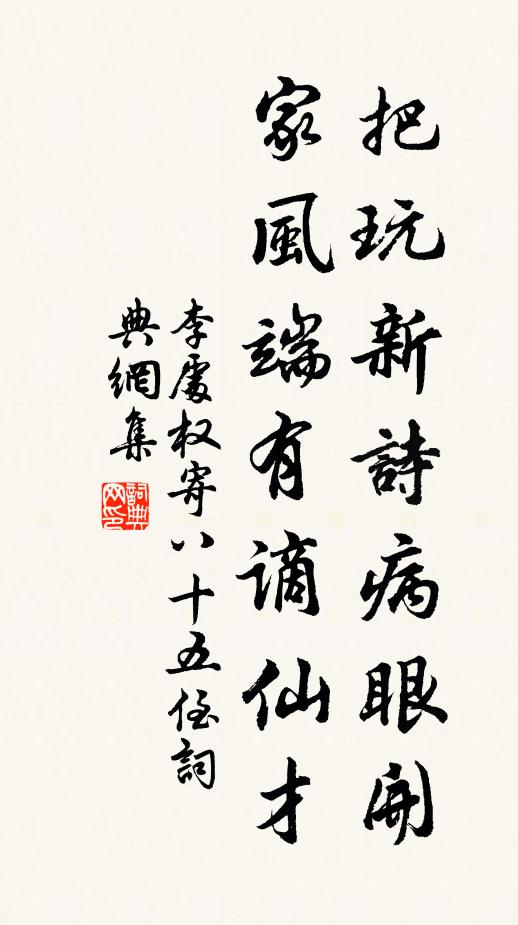 把玩新詩病眼開
家風端有謫仙才
李處權寄八十五侄詞
典網集
詞典
网印